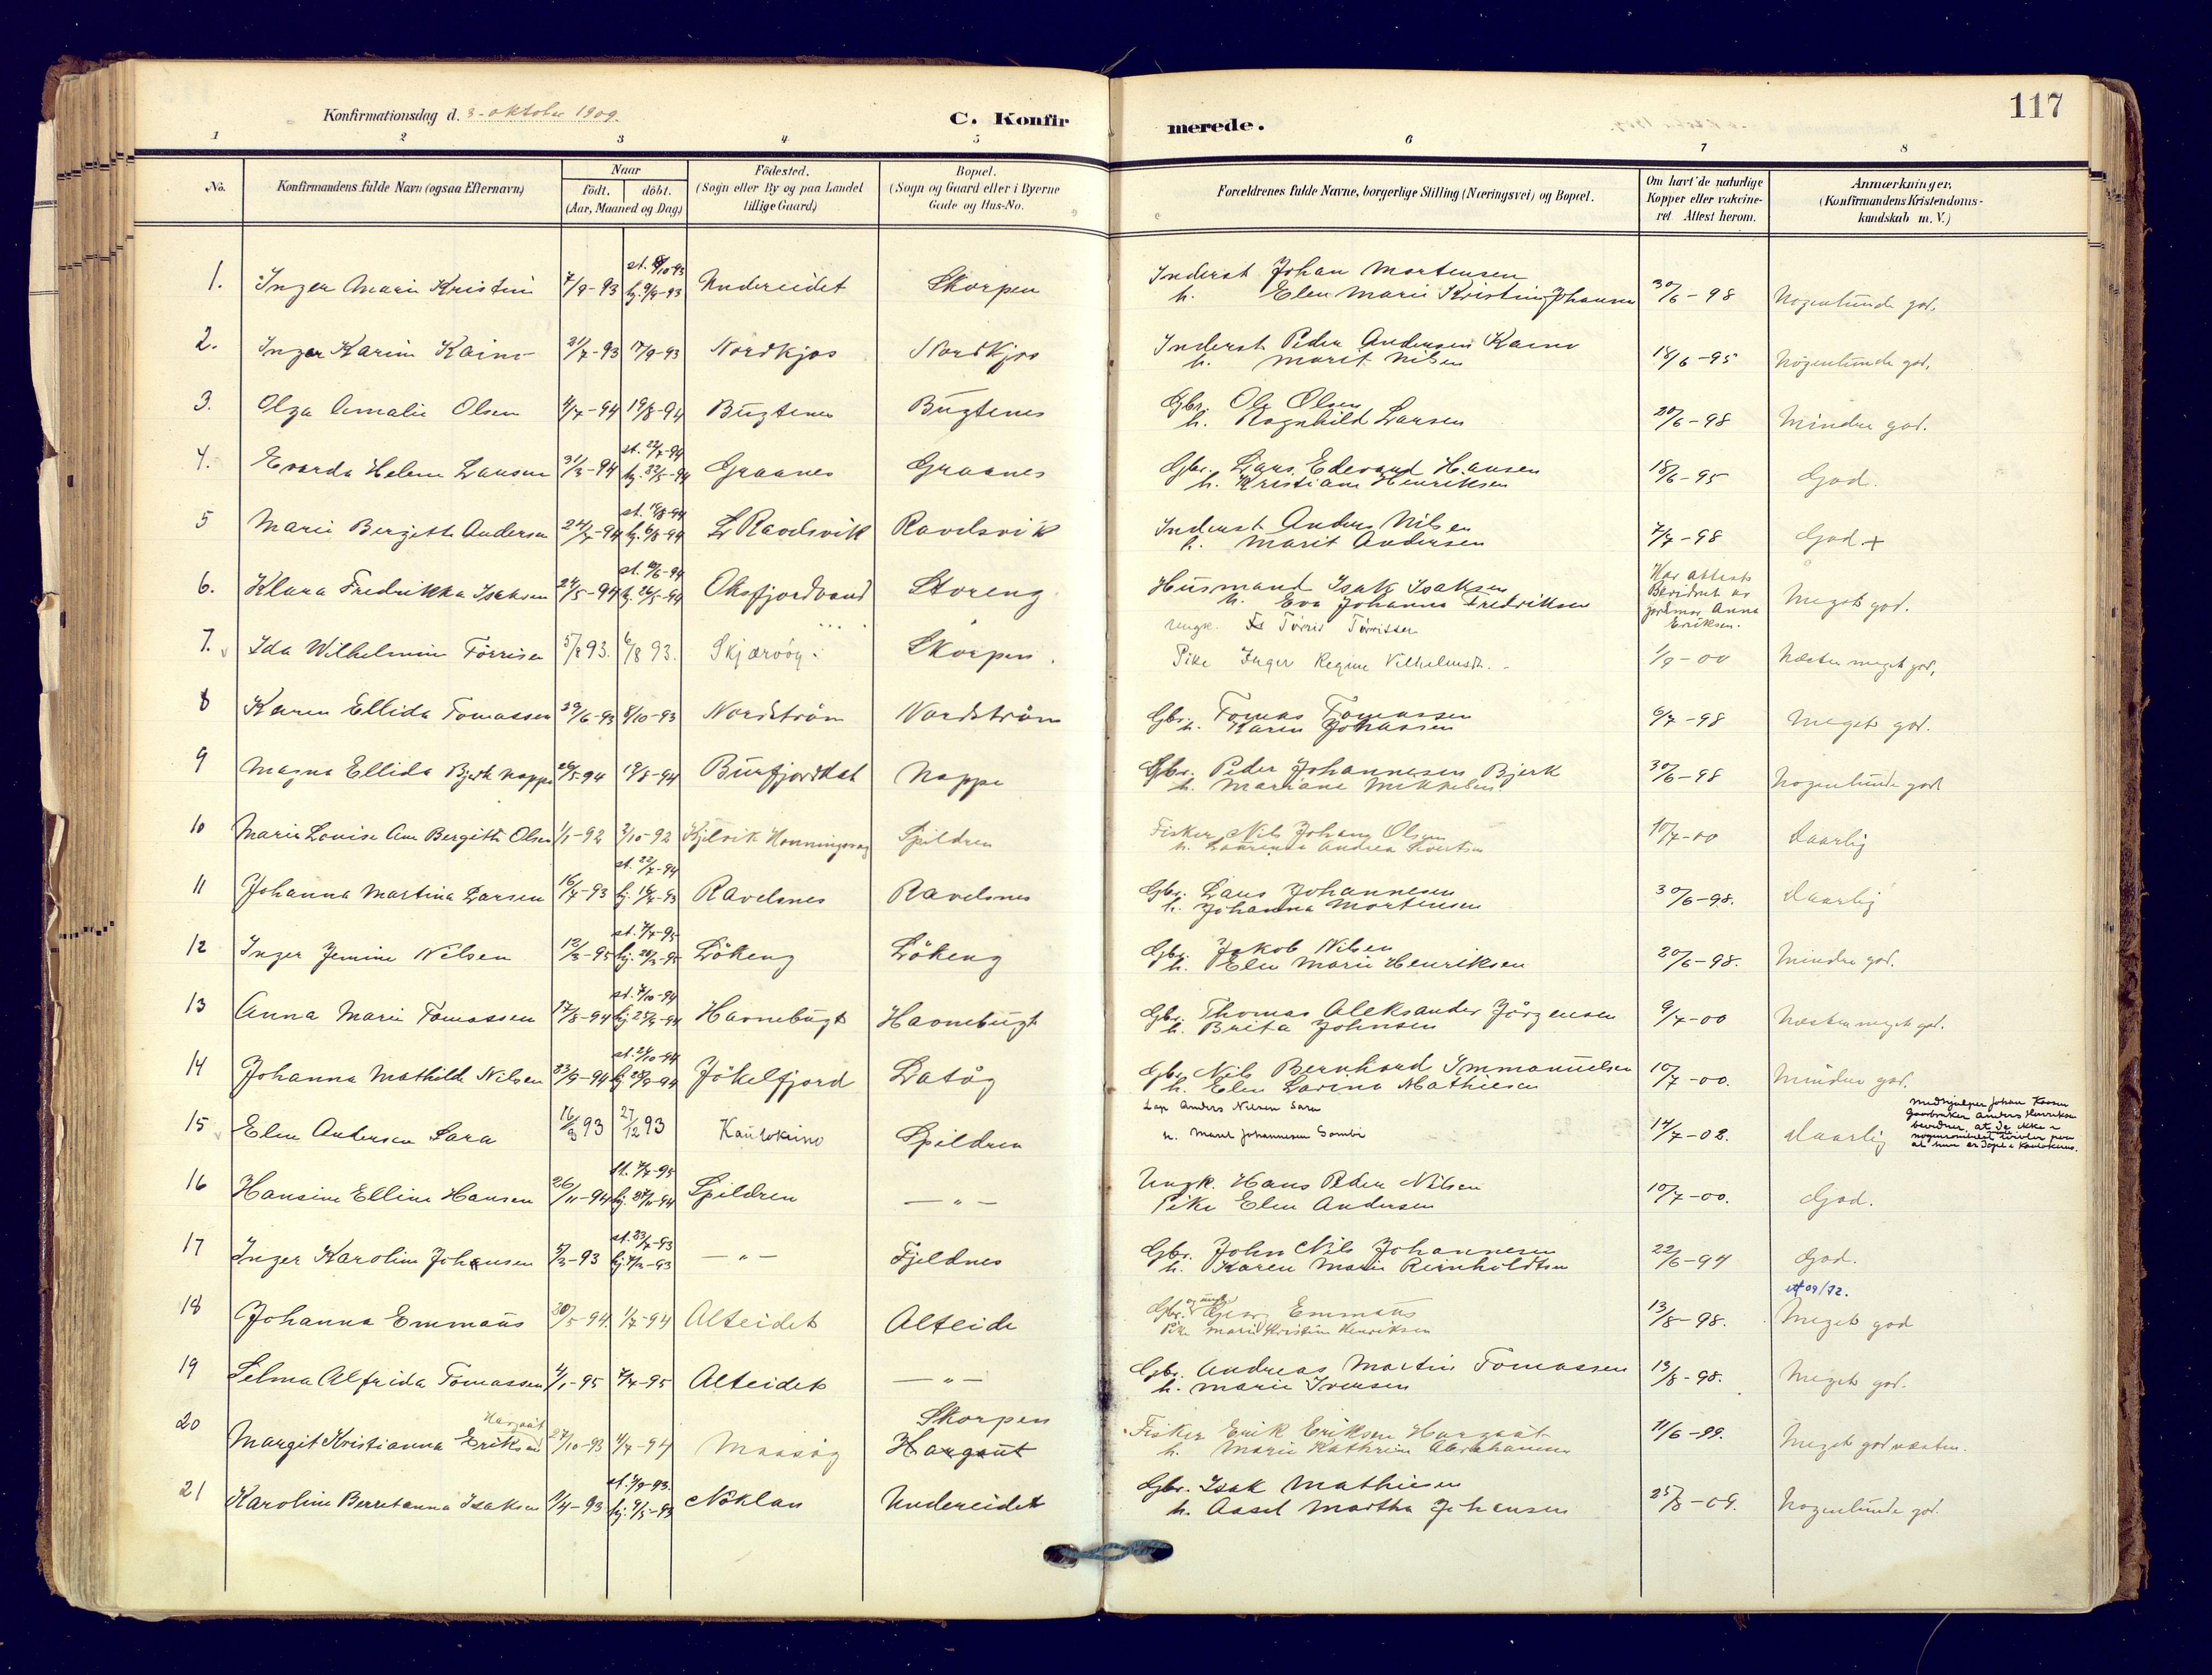 117
Konfirmationsdag d. 3. oktober 1909.
C. Konfirmerede.
1 2 3 4 5 6 7 8
No.
Konfirmandens fulde Navn (ogsaa Efternavn)
Naar
født. døbt.
(Aar, Maaned og Dag)
Födested.
(Sogn eller By og paa Landet
tillige Gaard)
Bopæl.
(Sogn og Gaard eller i Byerne
Gade og Hus-No.
Forældrenes fulde Navne, borgerlige Stilling (Næringsvei) og Bopæl.
Om havt de naturlige
Kopper eller vakcine-
ret Attest herom.
Anmærkninger.
(Konfirmandens Kristendoms-
kundskab m. V.)
1. Inger Marie Kristine 7/9-93 hj. 9/9-93 Undereidet Skorpen
Inderst Johan Mortensen
h. Elen Marie Kristine Johansen 30/6-98 Nogenlunde god.
2. Inger Karine Kaino 21/7-93 17/9-93 Nordkjos Nordkjos
Inderst Peder Andersen Kaino
h. Marit Nilsen 18/6-95 Nogenlunde god.
3. Olga Amalie Olsen 4/7-94 19/8-94 Bugtenes Bugtenes
Gbr. Ole Olsen
h. Ragnhild Larsen 20/6-98 Mindre god.
4. Evarda Helene Lausen 31/3-94 st. 22/7-94 Graanes Graanes
Gbr. Lars Edevard Hansen
h. Kristiane Henriksen 18/6-95 God.
5 Marie Bergitte Andersen 24/7-94 st. 19/8-94
hj. 6/8-94 L Ravelsvik Ravelsvik
Inderst Anders Nilsen
h. Marit Andersen 7/7-98 God +
6. Klara Fredrikka Isaksen 24/5-94 hj. 26/5-94 Oksfjordvand Storeng
Husmand Isak Isaksen
h. Eva Johanna Fredriksen
Har attest
jordmor Anna
Eriksen. Meget god.
7. Ida Wilhelmine Törrisen 5/8 93. 6/8 93. Skjærvöy. Skorpen.
Ungk. Törris Törrissen
Pike Inger Regine Vilhelmsdt. 1/9-00 Næsten meget god.
8 Karen Ellida Tomassen 29/6-93 8/10-93 Nordström Nordström
Gbr. Tomas Tomassen
h. Karen Johansen 6/7-98 Meget god.
9 Magna Ellida Bjerk Noppi 26/5-94 19/8-94 Burfjorddal Noppi
Gbr. Peder Johannesen Bjerk
h. Mariane Mikkelsen 30/6-98 Nogenlunde god
10 Marie Louise Ane Bergitte Olsen 1/1-92 2/10-92 Kjelvik Honningsvag Spildren
Fisker Nils Johan Olsen
h. Laurensa Andrea Sivertsen 10/7-00 daarlig
11 Johanna Martina Larsen 16/7-93 st. 22/7-94
Ravelsnes Ravelsnes
Gbr. Lars Johannesen
h. Johanna Mortensen 30/6-98. daarlig
12 Inger Jemine Nilsen 12/3-95 Lökeng Lökeng
Gbr. Jakob Nilsen
h. Elen Marie Henriksen 20/6-98. Mindre god.
13 Anna Marie Tomassen 17/8-94 st. 7/10-94
Havnebugt Havnebugt
Gbr. Thomas Aleksander Jörgensen
h. Brita Johnsen 9/7-00 Næsten meget god.
14 Johanna Mathilde Nilsen 23/9-94 Jökelfjord Latög
Gbr. Nils Bernhard Immanuelsen
h. Elen Larina Mathiesen 10/7-00. Mindre god.
15 Elen Andersen Sara 16/3 93 27/12 93 Kautokeino Spildren
Lap Anders Nilsen Sara
h. Maret Johannesen Sombi 14/7-02. daarlig
Medhjælper Johan Kaasen
Gaardbruker Anders Henriksen
at hun er döpt i Kautokeino.
16 Hansine Elline Hansen 26/11-94 Spildren — " —
Ungk. Hans Peder Nilsen
Pike Elen Andersen 10/7-00. God.
17 Inger Karoline Johansen 5/3-93 st. 23/7-93
— " — Fjeldnes
Gbr. John Nils Johannesen
h. Karen Marie Reinholdtsen 22/6-94 God.
18 Johanna Emmaus 30/5-94. 1/7-94 Alteidet Alteide
Gbr. og ungk. Georg Emmaus
Pike Marie Kristine Henriksen 13/8-98. 09/72.
Meget god
19 Selma Alfrida Tomassen 4/1-95 7/4-95 Alteidet — " —
Gbr. Andreas Martin Tomassen
h. Marie Iversen 13/8-98. Meget god.
20 Margit Kristianna Eriksen Hargaut 27/10-93 4/7-94 Maasöy Skorpen
Hargaut
Fisker Erik Eriksen Hargaut
h. Marie Kathrine Abrahamsen 11/6-99. Meget god næsten.
21 Karoline Berretanna Isaksen 9/4-93 Noklan Undereidet
Gbr. Isak Mathiesen
h. Aasel Martha Johansen 25/8-09. Nogenlunde god.